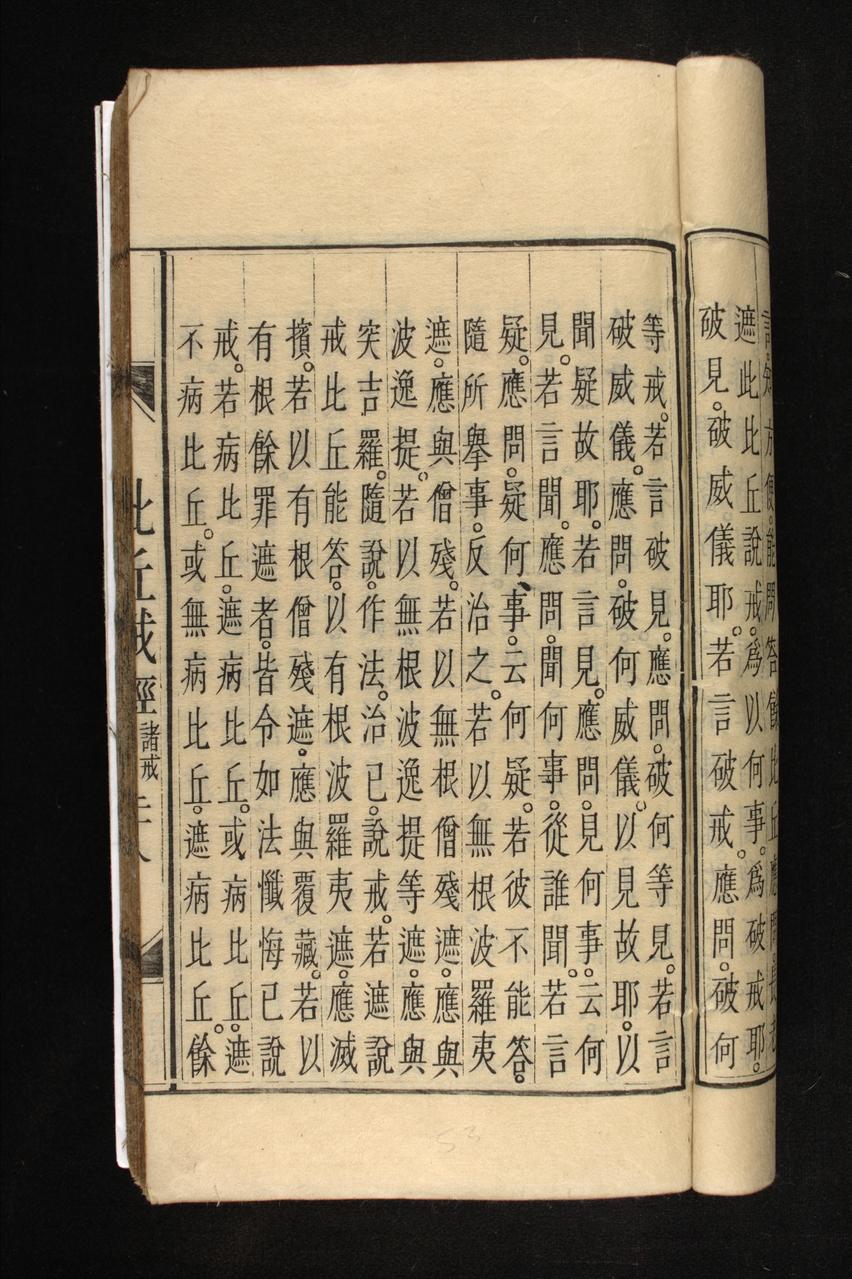 言。知方便。能問答。餘比丘應問。長老
遮此比丘說戒。爲以何事。爲破戒耶。
破見。破威儀耶。若言破戒。應問。破何
等戒。若言破見。應問。破何等見。若言
破威儀。應問。破何威儀。以見故耶。以
聞疑故耶。若言見。應問。見何事。云何
見。若言聞。應問。聞何事。從誰聞。若言
疑。應問。疑何事。云何疑。若彼不能答。
隨所舉事。反治之。若以無根波羅夷
遮。應與僧殘。若以無根僧殘遮。應與
波逸提。若以無根波逸提等遮。應與
突吉羅。隨說。作法。治已。說戒。若遮說
戒比丘能答。以有根波羅夷遮。應滅
擯。若以有根僧殘遮。應與覆藏。若以
有根餘罪遮者。皆令如法懺悔已說
戒。若病比丘。遮病比丘。或病比丘。遮
不病比丘。或無病比丘。遮病比丘。餘
比丘戒經 諸戒
53